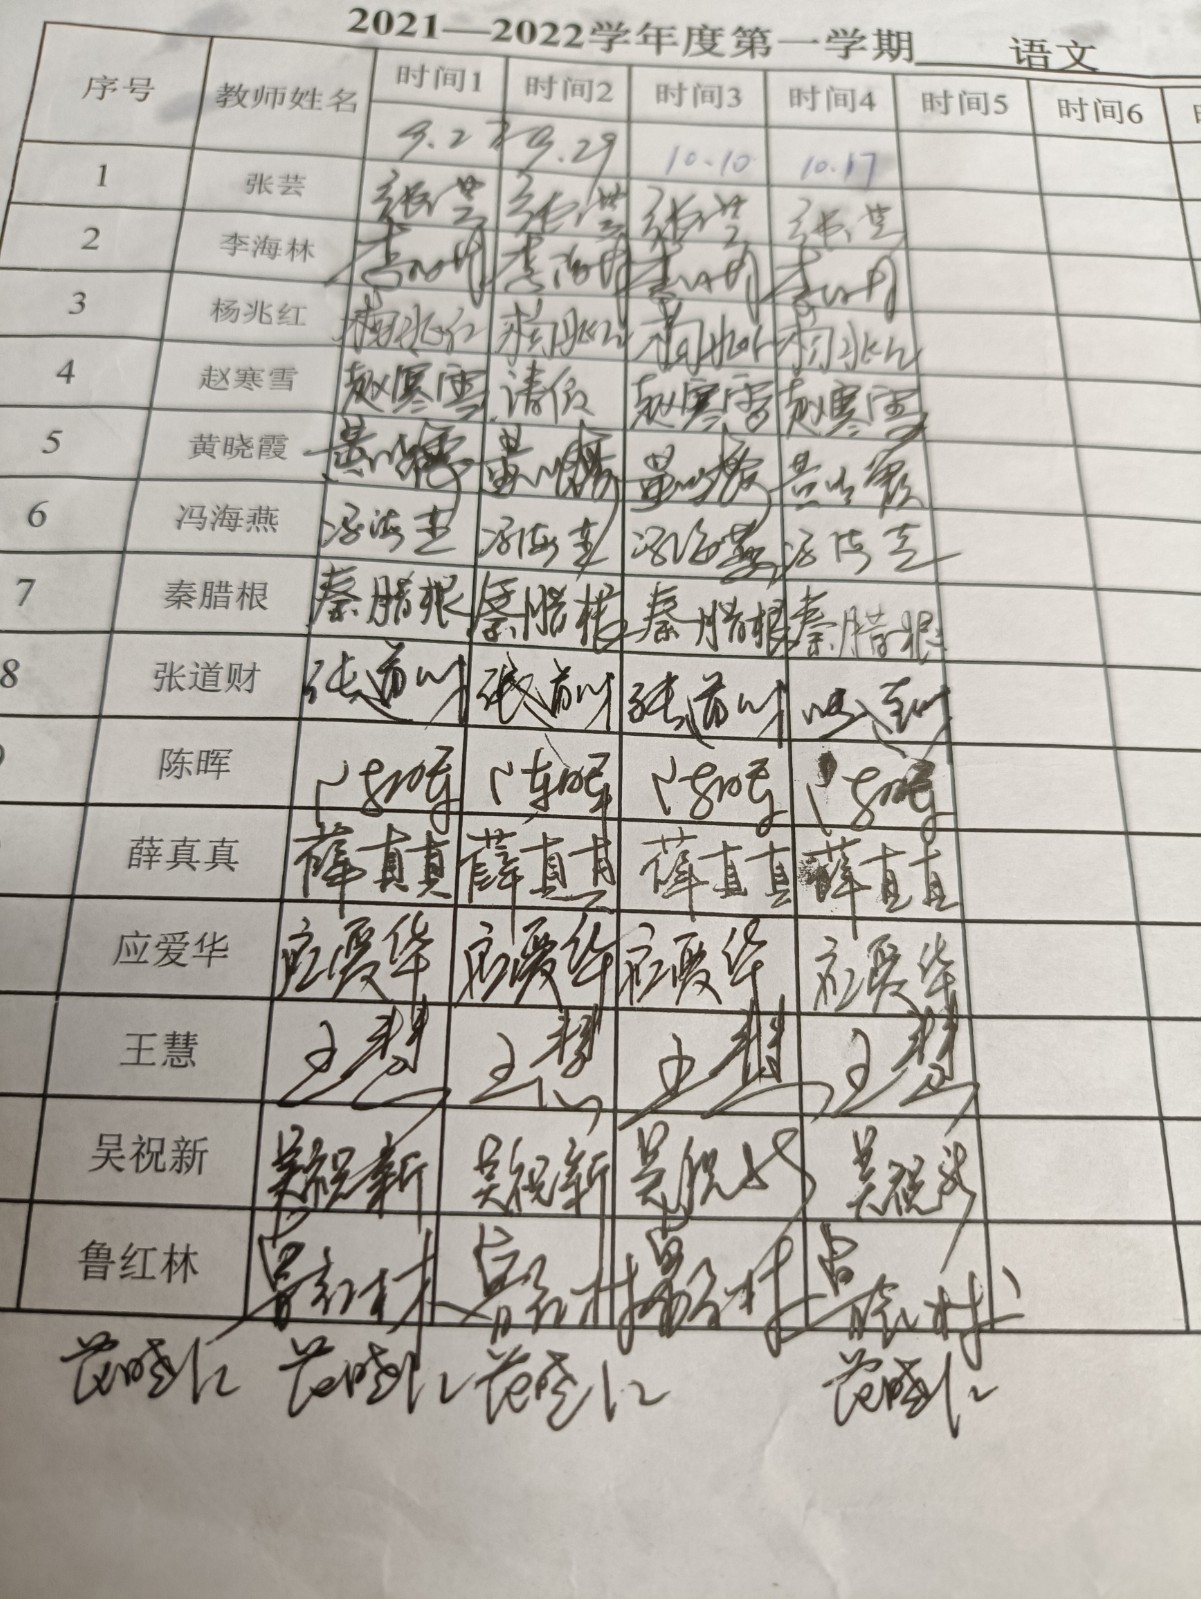 2021—2022学年度第一学期 语文
序号 教师姓名 时间1 时间2 时间3 时间4 时间5 时间6
9.27 9.29 10.10 10.17
1 张芸 张芸 张芸 张芸 张芸
2 李海林 李海林 李海林 李海林 李海林
3 杨兆红 杨兆红 杨兆红 杨兆红 杨兆红
4 赵寒雪 赵寒雪 请假 赵寒雪 赵寒雪
5 黄晓霞 黄晓霞 黄晓霞 黄晓霞 黄晓霞
6 冯海燕 冯海燕 冯海燕 冯海燕 冯海燕
7 秦腊根 秦腊根 秦腊根 秦腊根 秦腊根
8 张道财 张道财 张道财 张道财 张道财
陈晖 陈晖 陈晖 陈晖 陈晖
薛真真 薛真真 薛真真 薛真真 薛真真
应爱华 应爱华 应爱华 应爱华 应爱华
王慧 王慧 王慧 王慧 王慧
吴祝新 吴祝新 吴祝新 吴祝新 吴祝新
鲁红林 鲁红林 鲁红林 鲁红林 鲁红林
范晓红 范晓红 范晓红 范晓红